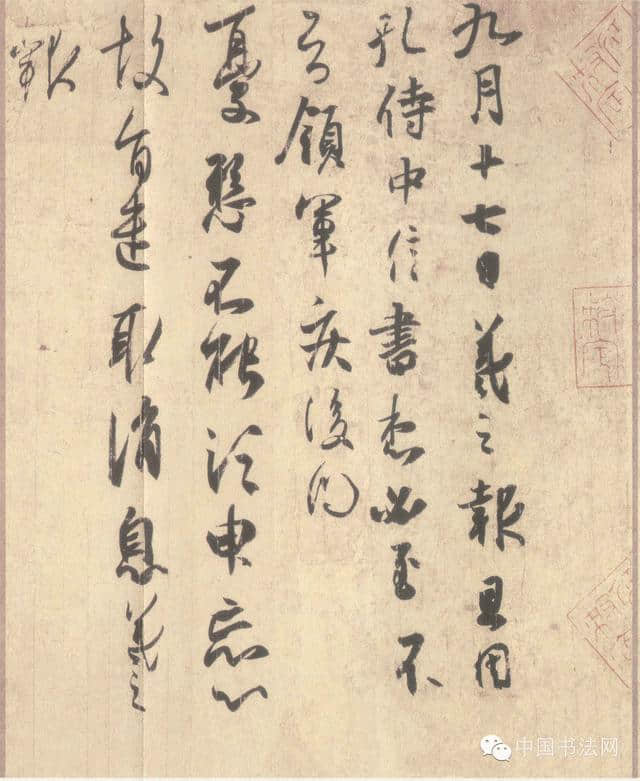 九月十七日羲之報且因
孔侍中信書想必至不
知領軍疾後問
憂懸不能須臾忘心
故旨遣取消息羲之
報
中国书法网